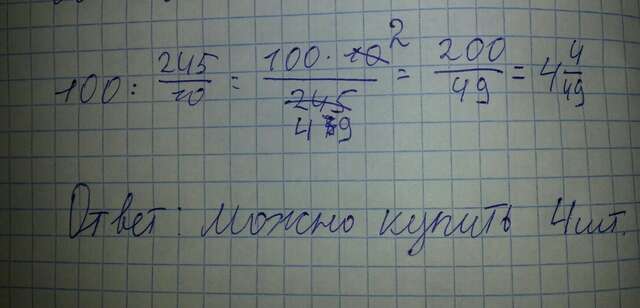 100 : 245/10 = 100 · 10 2 / 245 49 = 200/49 = 4 4/49
Ответ: можно купить 4 шт.